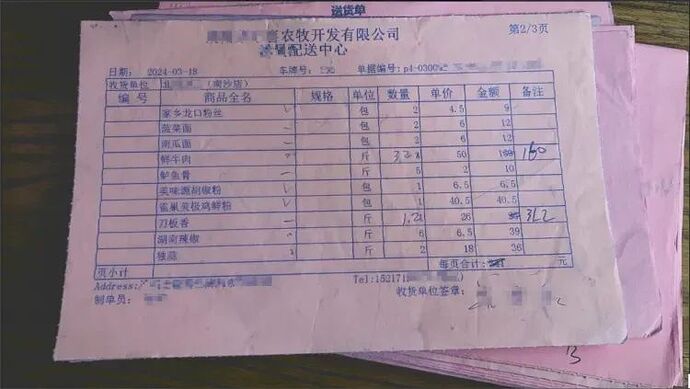 送货单
农牧开发有限公司
配送中心
第2/3页
日期: 2024-03-18 车牌号: 单据编号:p4-0300
收货单位 (南沙店)
编 号 商品全名 规格 单位 数量 单价 金额 备注
家乡龙口粉丝 包 2 4.5 9
菠菜面 包 2 6 12
南瓜面 包 2 6 12
鲜牛肉 斤 3.2 50 160
鲈鱼骨 斤 5 2 10
美味源胡椒粉 包 1 6.5 6.5
雀巢美极鸡鲜粉 包 1 40.5 40.5
刀板香 斤 1.2 26 31.2
湖南辣椒 斤 6 6.5 39
独蒜 斤 2 18 36
页小计 每页合计: 元
Address: Tel:15217
制单员: 收货单位签章: